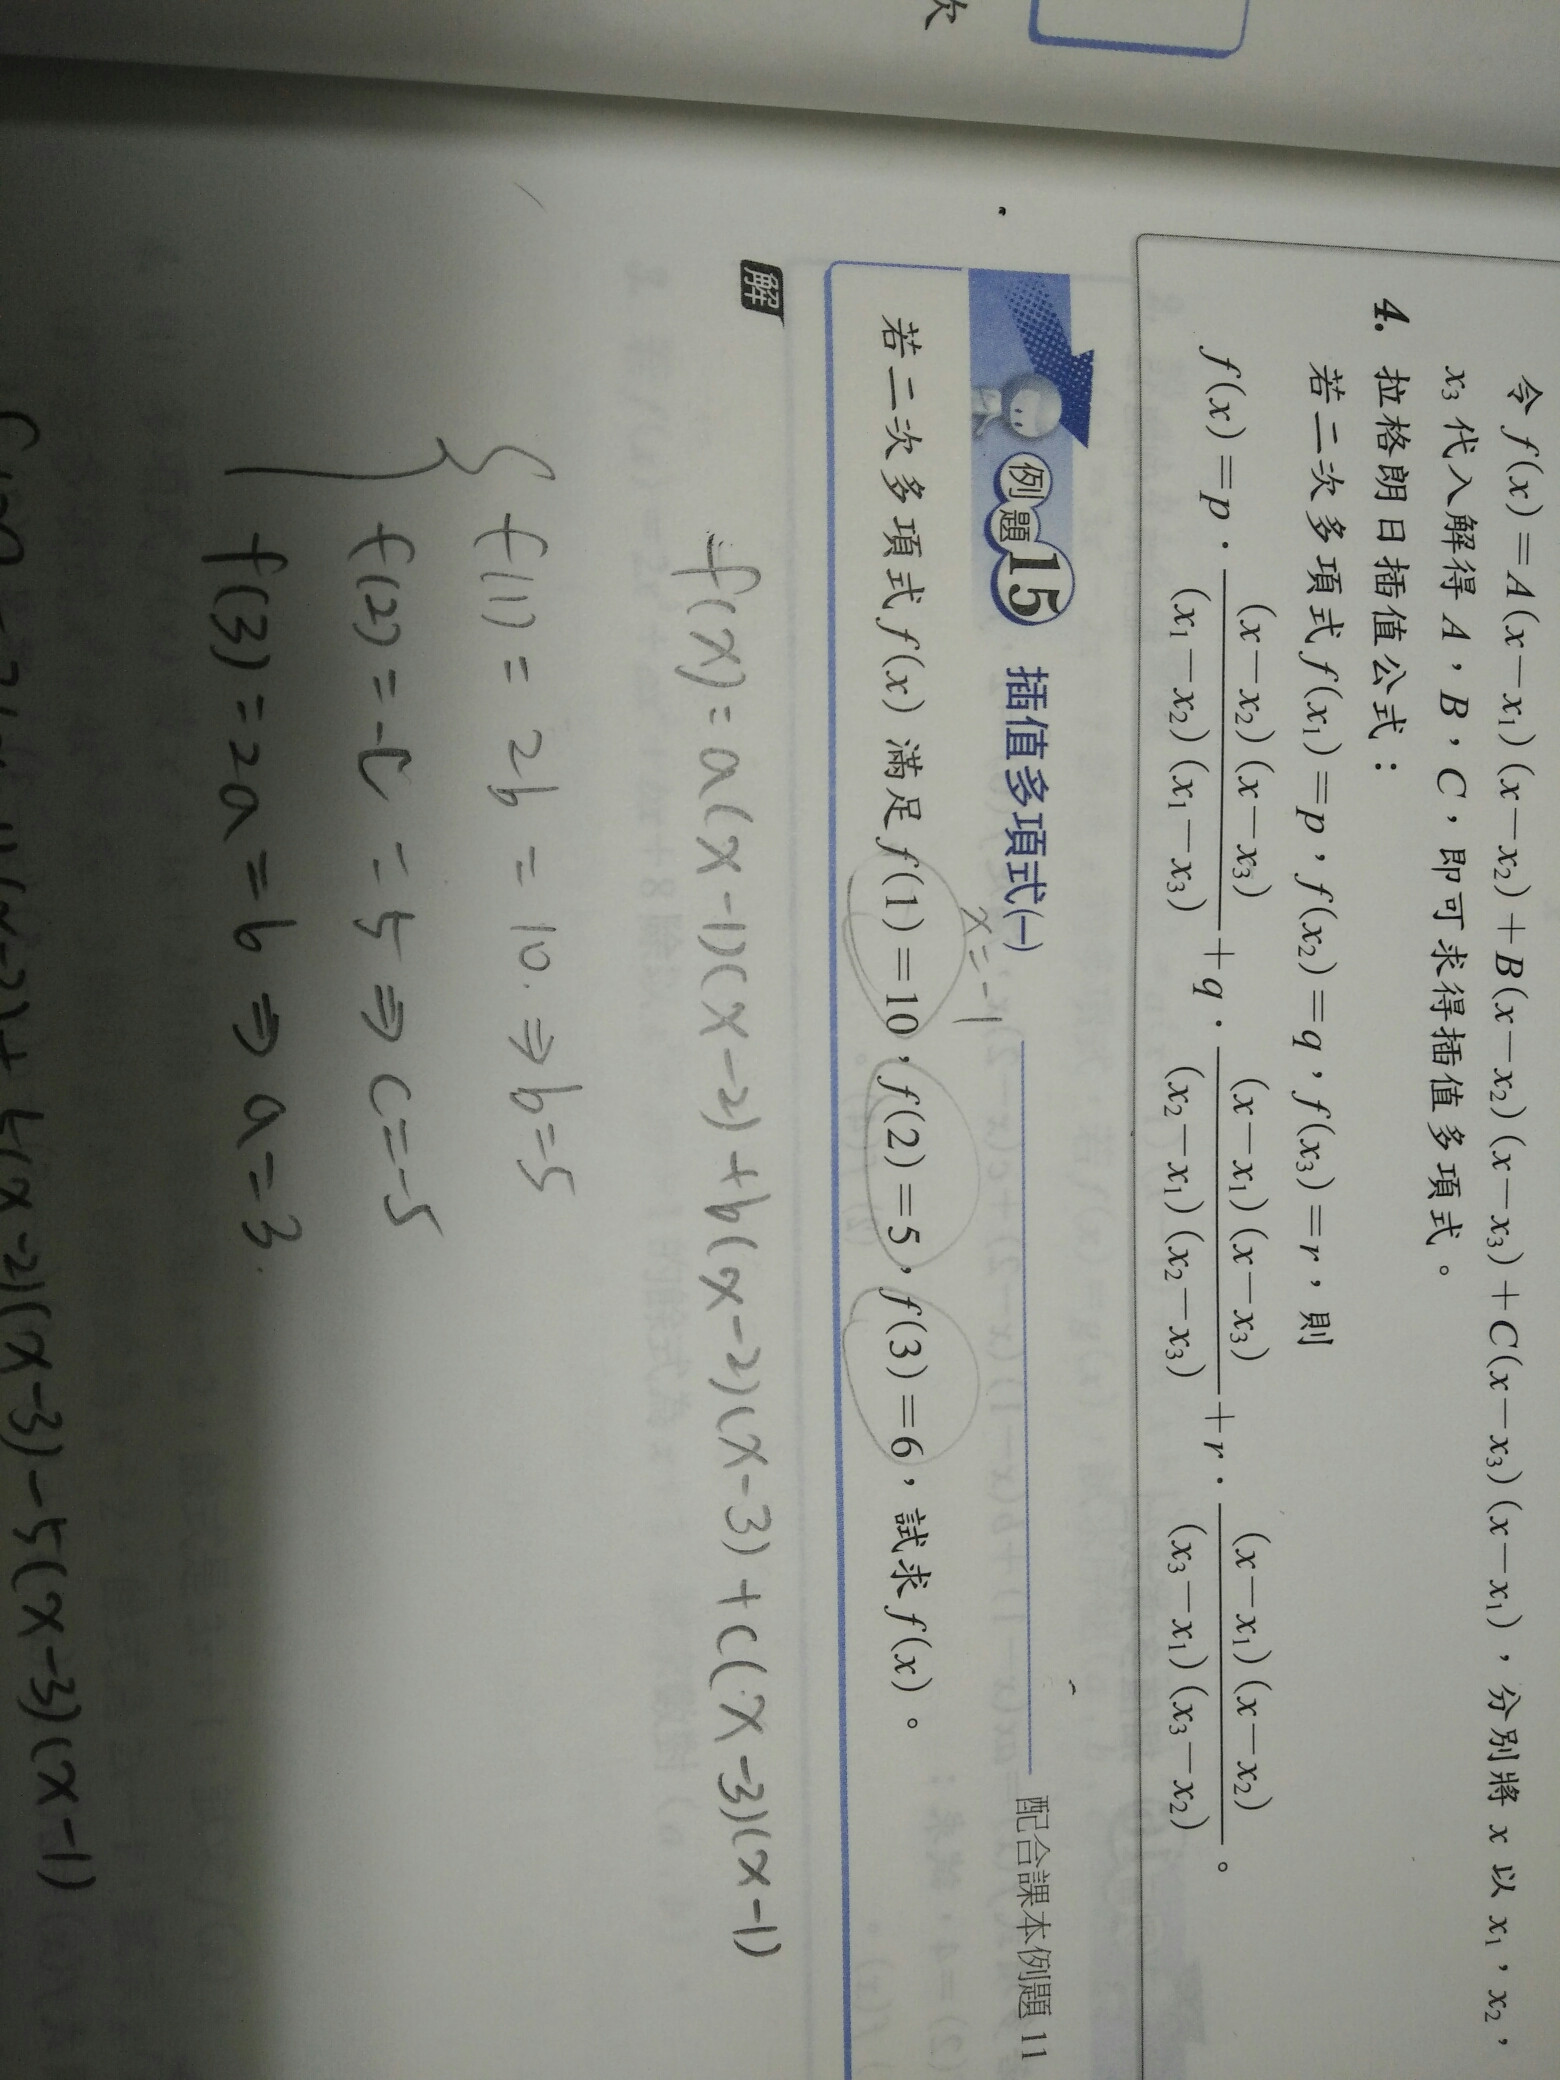 次
令 f(x)=A(x−x₁)(x−x₂)+B(x−x₂)(x−x₃)+C(x−x₃)(x−x₁)，分別將 x 以 x₁，x₂，
x₃ 代入解得 A，B，C，即可求得插值多項式。
4. 拉格朗日插值公式：
若二次多項式 f(x₁)=p，f(x₂)=q，f(x₃)=r，則
f(x)=p．(x−x₂)(x−x₃)/(x₁−x₂)(x₁−x₃)+q．(x−x₁)(x−x₃)/(x₂−x₁)(x₂−x₃)+r．(x−x₁)(x−x₂)/(x₃−x₁)(x₃−x₂)。
例題15 插值多項式(一) 配合課本例題 11
x=-1
若二次多項式 f(x) 滿足 f(1)=10，f(2)=5，f(3)=6，試求 f(x)。
解
f(x)=a(x-1)(x-2)+b(x-2)(x-3)+c(x-3)(x-1)
f(1)=2b=10.⇒b=5
f(2)=-c=5⇒c=-5
f(3)=2a=6⇒a=3.
(x-2)(x-3)-5(x-3)(x-1)